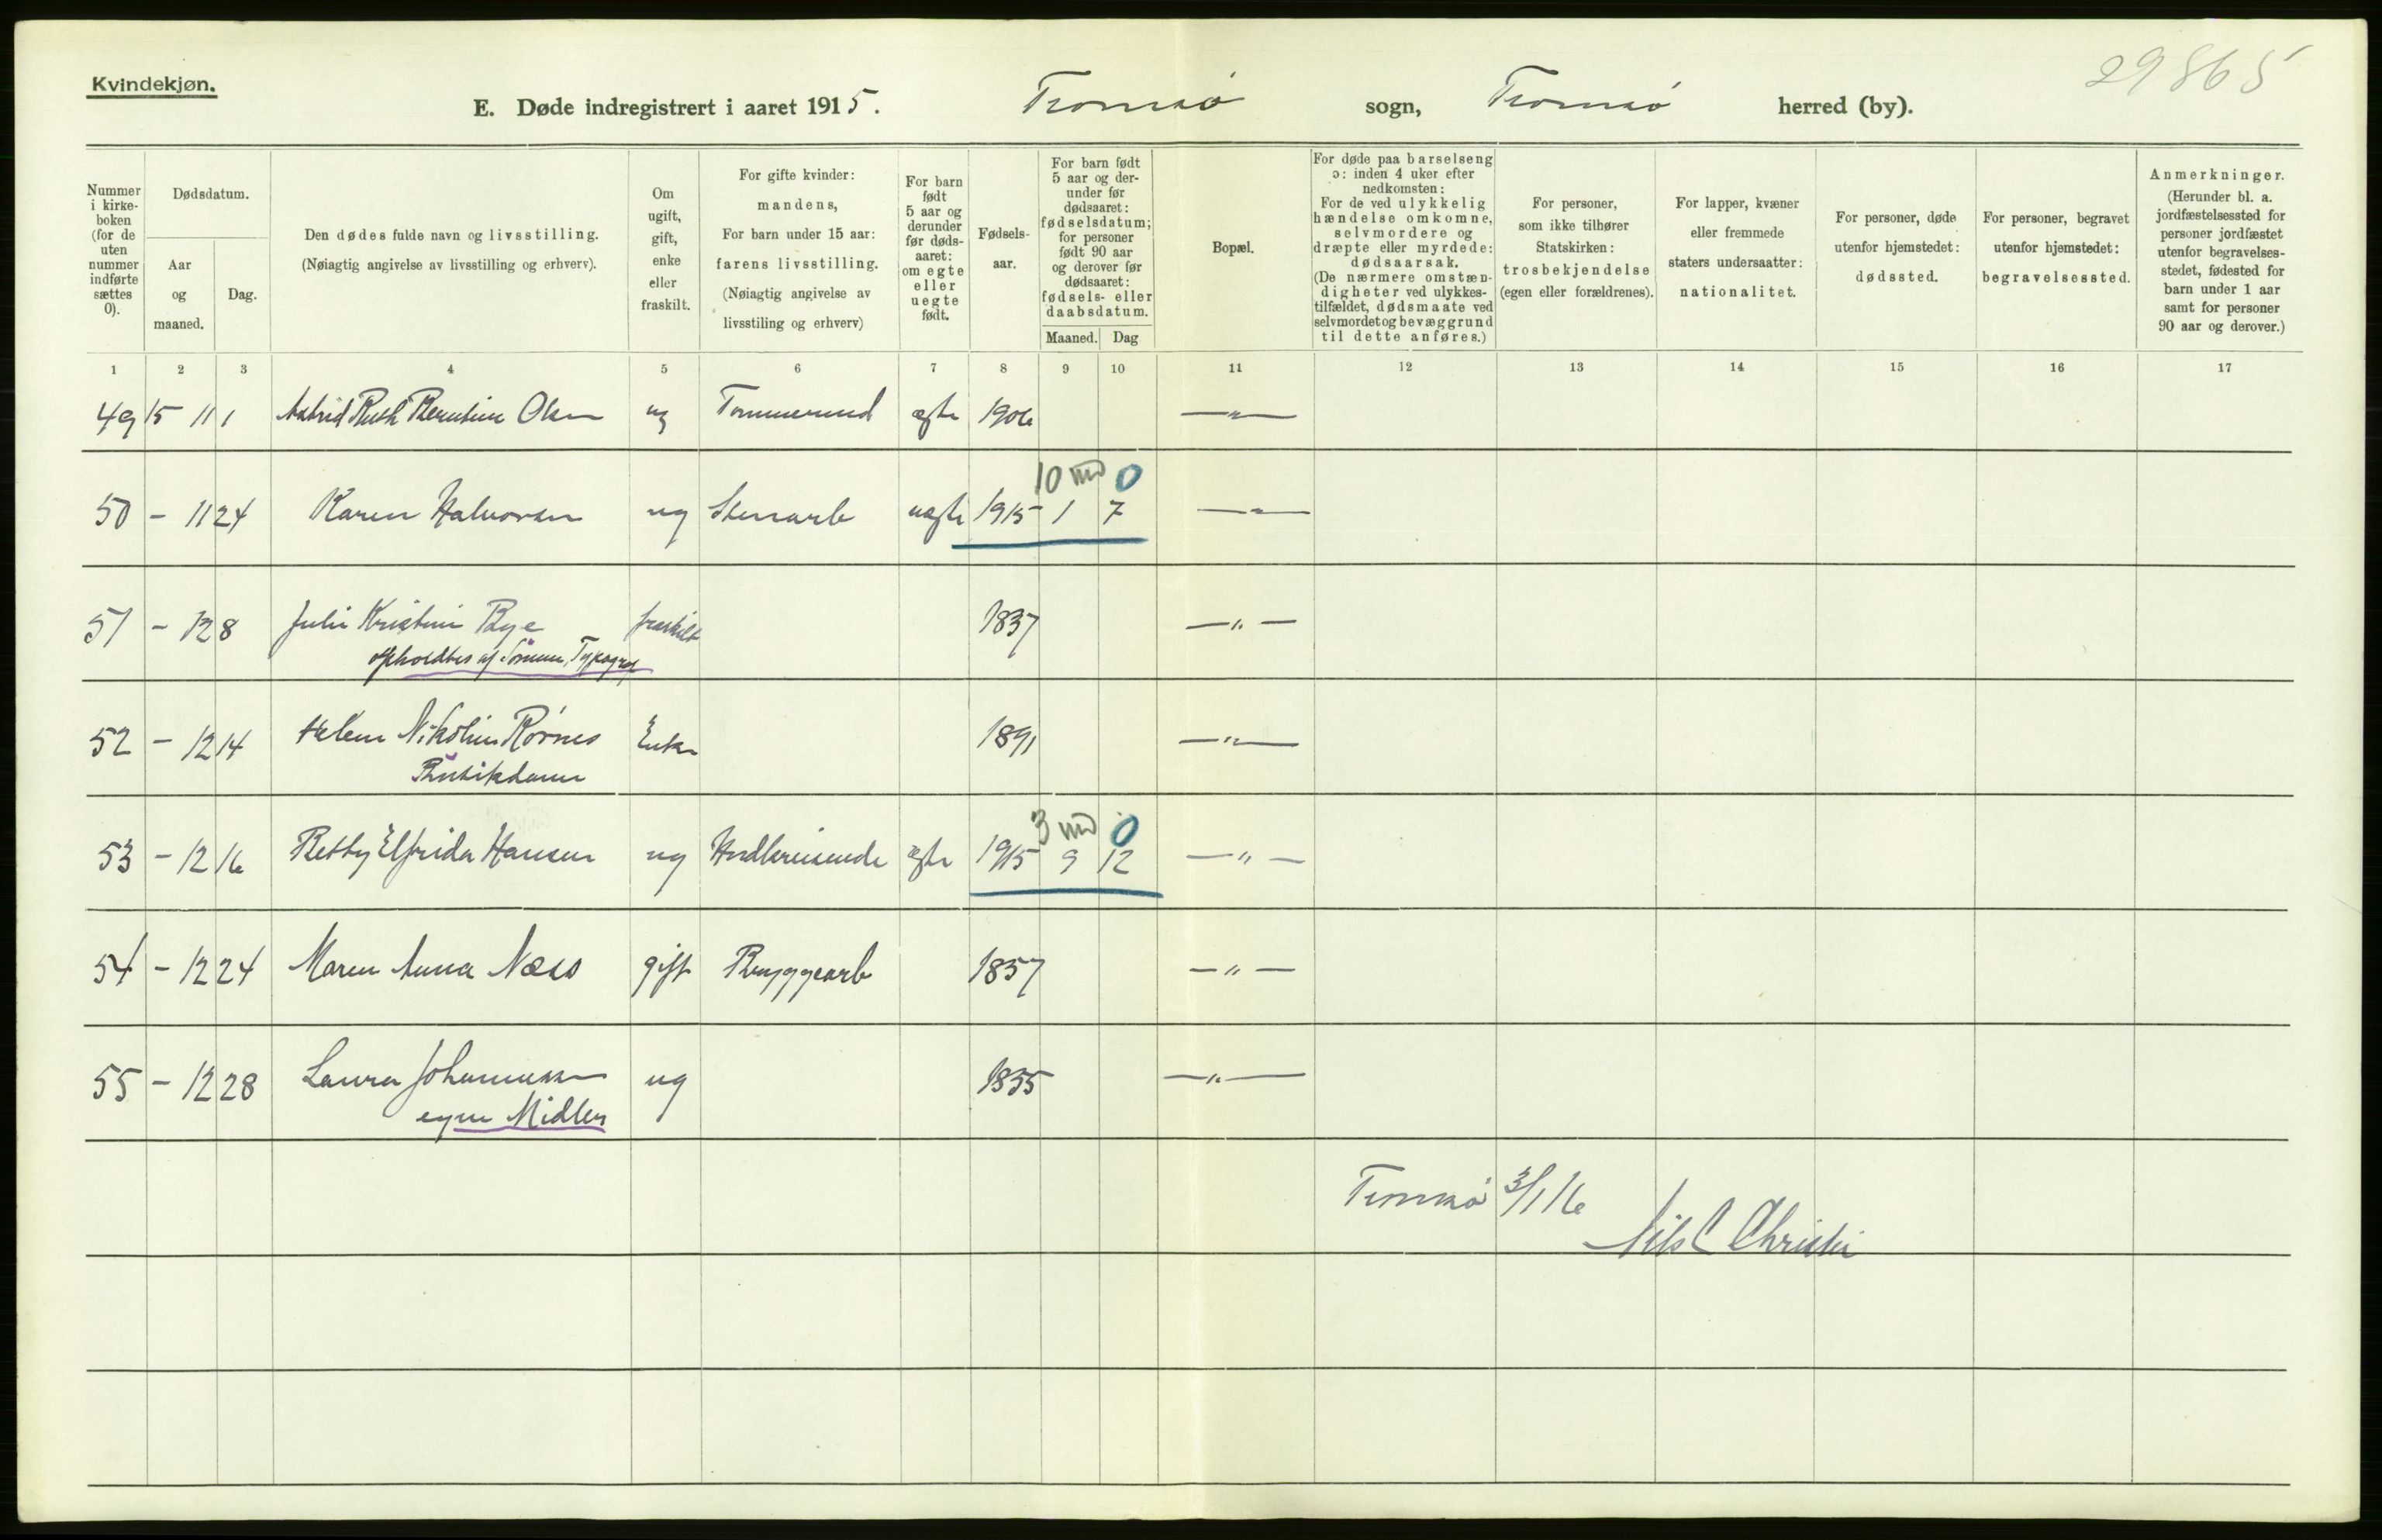 Kvindekjøn.
29865
E. Døde indregistrert i aaret 1915. Tromsø sogn, Tromsø herred (by).
Nummer i kirkeboken (for de uten nummer indførte sættes 0).
Dødsdatum.
Aar og maaned.
Dag.
Den dødes fulde navn og livsstilling.
(Nøiagtig angivelse av livsstilling og erhverv).
Om ugift, gift, enke eller fraskilt.
For gifte kvinder: mandens,
For barn under 15 aar: farens livsstilling.
(Nøiagtig angivelse av livsstiling og erhverv)
For barn født 5 aar og derunder før dødsaaret: om egte eller uegte født.
Fødselsaar.
For barn født 5 aar og derunder før dødsaaret: fødselsdatum; for personer født 90 aar og derover før dødsaaret: fødsels- eller daabsdatum.
Maaned. Dag
Bopæl.
For døde paa barselseng ɔ: inden 4 uker efter nedkomsten:
For de ved ulykkelig hændelse omkomne, selvmordere og dræpte eller myrdede: dødsaarsak.
(De nærmere omstændigheter ved ulykkestilfældet, dødsmaate ved selvmordet og bevæggrund til dette anføres.)
For personer, som ikke tilhører Statskirken: trosbekjendelse (egen eller forældrenes).
For lapper, kvæner eller fremmede staters undersaatter: nationalitet.
For personer, døde utenfor hjemstedet: dødssted.
For personer, begravet utenfor hjemstedet: begravelsessted.
Anmerkninger.
(Herunder bl. a. jordfæstelsessted for personer jordfæstet utenfor begravelsesstedet, fødested for barn under 1 aar samt for personer 90 aar og derover.)
1 2 3 4 5 6 7 8 9 10 11 12 13 14 15 16 17
49 15 11 1 Astrid Ruth Berntine Olsen ug Tømmermand ægte 1906 —"—
10 md 0
50 – 11 24 Karen Halvorsen ug Stenarb uægte 1915 1 7 —"—
51 – 12 8 Julie Kristine Bye fraskilt 1837 —"—
opholdtes af Sønnen, Typograf
52 – 12 14 Helene Nikoline Rørnes Enke 1891 —"—
Butikdame
3 md 0
53 – 12 16 Betty Elfrida Hansen ug Handlsreisende ægte 1915 9 12 —"—
54 – 12 24 Maren Anna Næss gift Bryggearb 1857 —"—
55 – 12 28 Laura Johannessen ug 1855 —"—
egne Midler
Tromsø 3/1 16
Nils C Christie